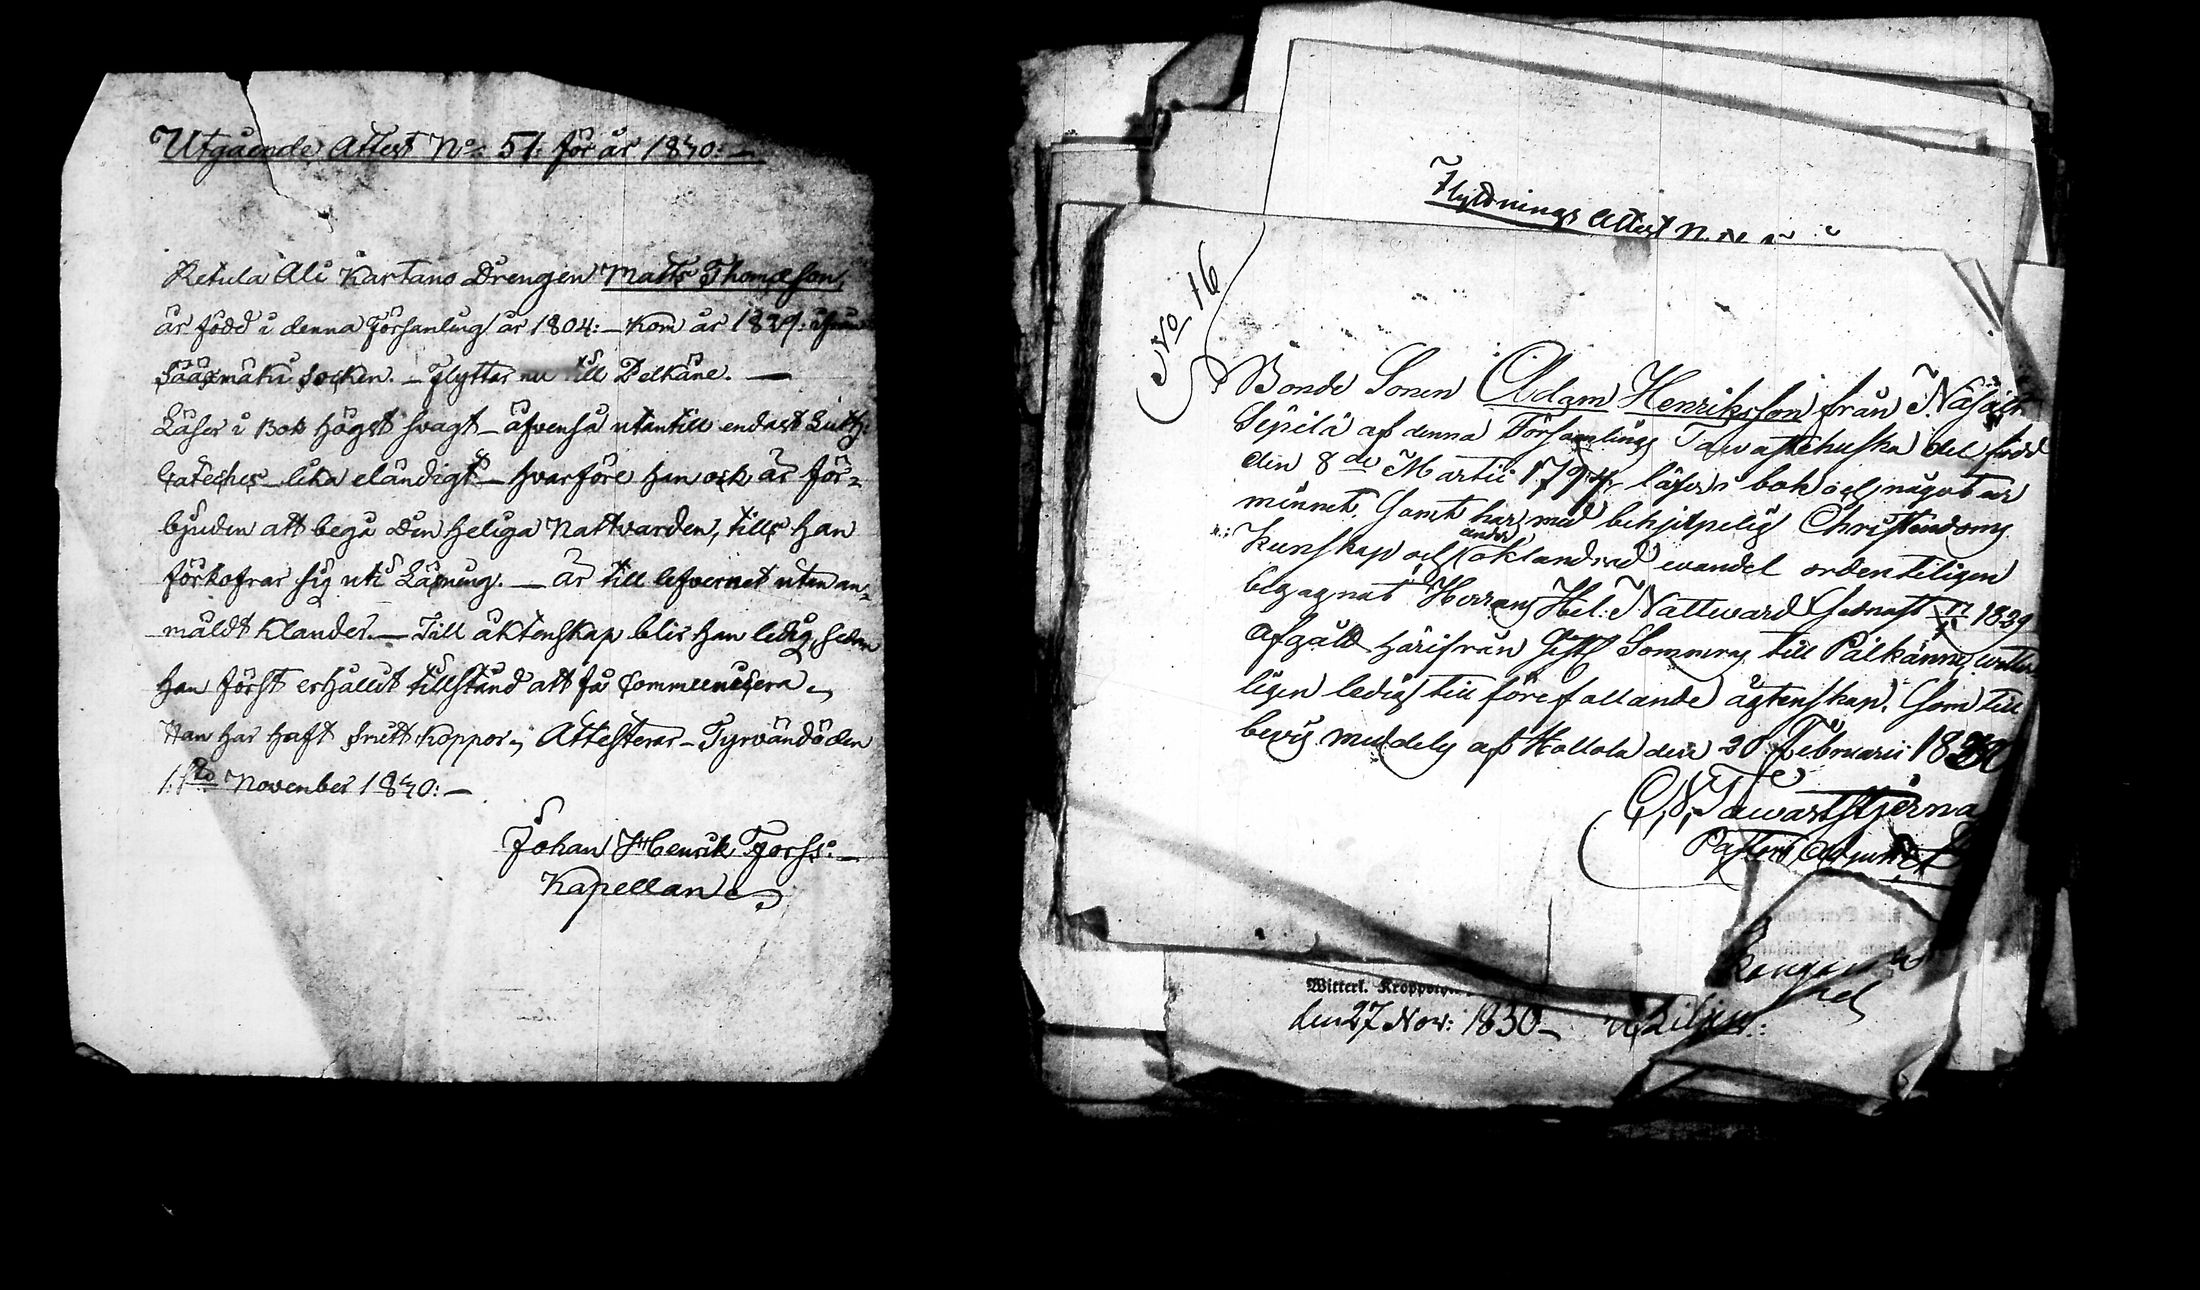 Utgående Attest No: 51: för år 1840: —
Retula Ali Kartano Drengen Matts Thomæson,
är född i denna Församling år 1804: — Kom år 1839: ifrån
Sääxmäki Socken. — Flyttar nu till Pelkäne. —
Läser i Bok högst svagt — äfvenså utantill endast Luth:
Cateches — lika eländigt — hvarföre han ock är för-
bjuden att begå den heliga Nattvarden, tills han
förkofrar sig uti Läsning. — Är till lefvernet utan an-
mäldt klander. — Till äktenskap blir han ledig, sedan
han först erhållit tillstånd att få Communicera.
Han har haft Smittkoppor; Attesterar — Tyrvändöden
November 1840: —
Johan Henrik Forss: —
Kapellan
Flyttnings Attest N.
No 16
Bonde Sonen Adam Henriksson från
Sipilä af denna Församlings Tawastehuska del född
den 8de Martii 1794, läser i bok och något ur
minnet, samt har med behjelpelig Christendoms
Kunskap och oklandrad wandel ordenteligen
begagnat Herrans Hel: Nattward senast 1829
Afgått härifrån sistl Sommar till Pälkänne,
ligen ledig till förefallande ägtenskap. Som till
bevis meddelas af Hollola den 20 Februarii
Tawaststjerna
Pastors Adjunct
Witterl.
den 27 Nov: 1830 —